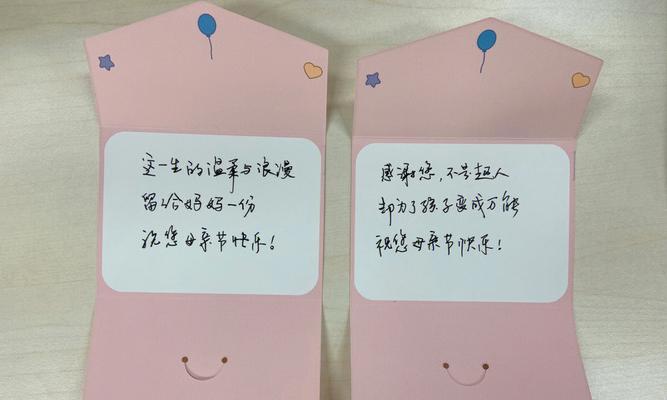 这一生的温柔与浪漫
留给妈妈一份
祝您母亲节快乐!
感谢您,不是超人
却为了孩子变成万能
祝您母亲节快乐!